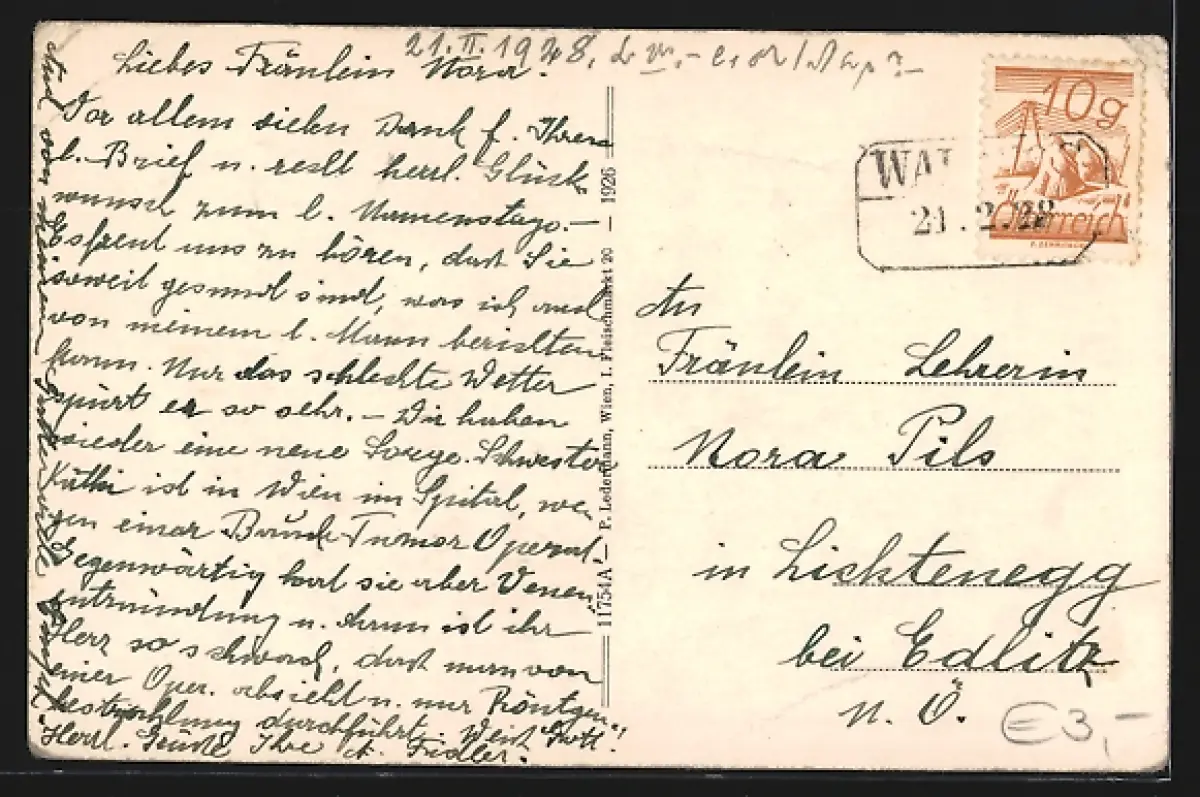 21. II. 1928.
Liebes Fräulein Nora!
Vor allem vielen Dank f. Ihren
l. Brief u. recht herzl. Glück
wunsch zum l. Namenstage.–
Es freut uns zu hören, dass Sie
soweit gesund sind, was ich auch
von meinem l. Mann berichten
kann. Nur das schlechte Wetter
spürt er so sehr. – Wir haben
wieder eine neue Sorge. Schwester
Käthi ist in Wien im Spital, we-
gen einer Bauch-Tumor Operat.
Gegenwärtig hat sie aber Venen
entzündung u. dann ist ihr
Herz so schwach, dass man von
einer Oper. absieht u. nur Röntgen
bestrahlung durchführt. Weiß Gott!
Herzl. Grüße Ihre A. Fidler.
Auch von meinem
11754A – P. Ledermann, Wien, I. Fleischmarkt 20 — 1926
10g
Österreich
WAL
21.2.28
An
Fräulein Lehrerin
Nora Pils
in Lichtenegg
bei Edlitz
N. Ö.
€3,–